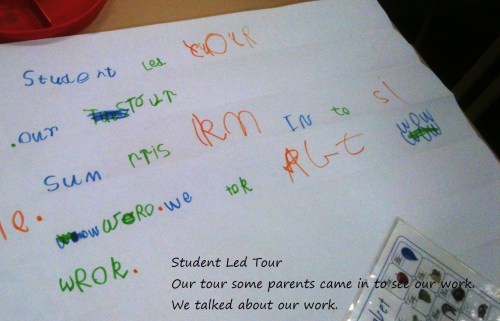 Student Led tOUR
.OUR TOUr
SUM PTIS KM IN to SI
we tok
WROK.
Student Led Tour
Our tour some parents came in to see our work.
We talked about our work.